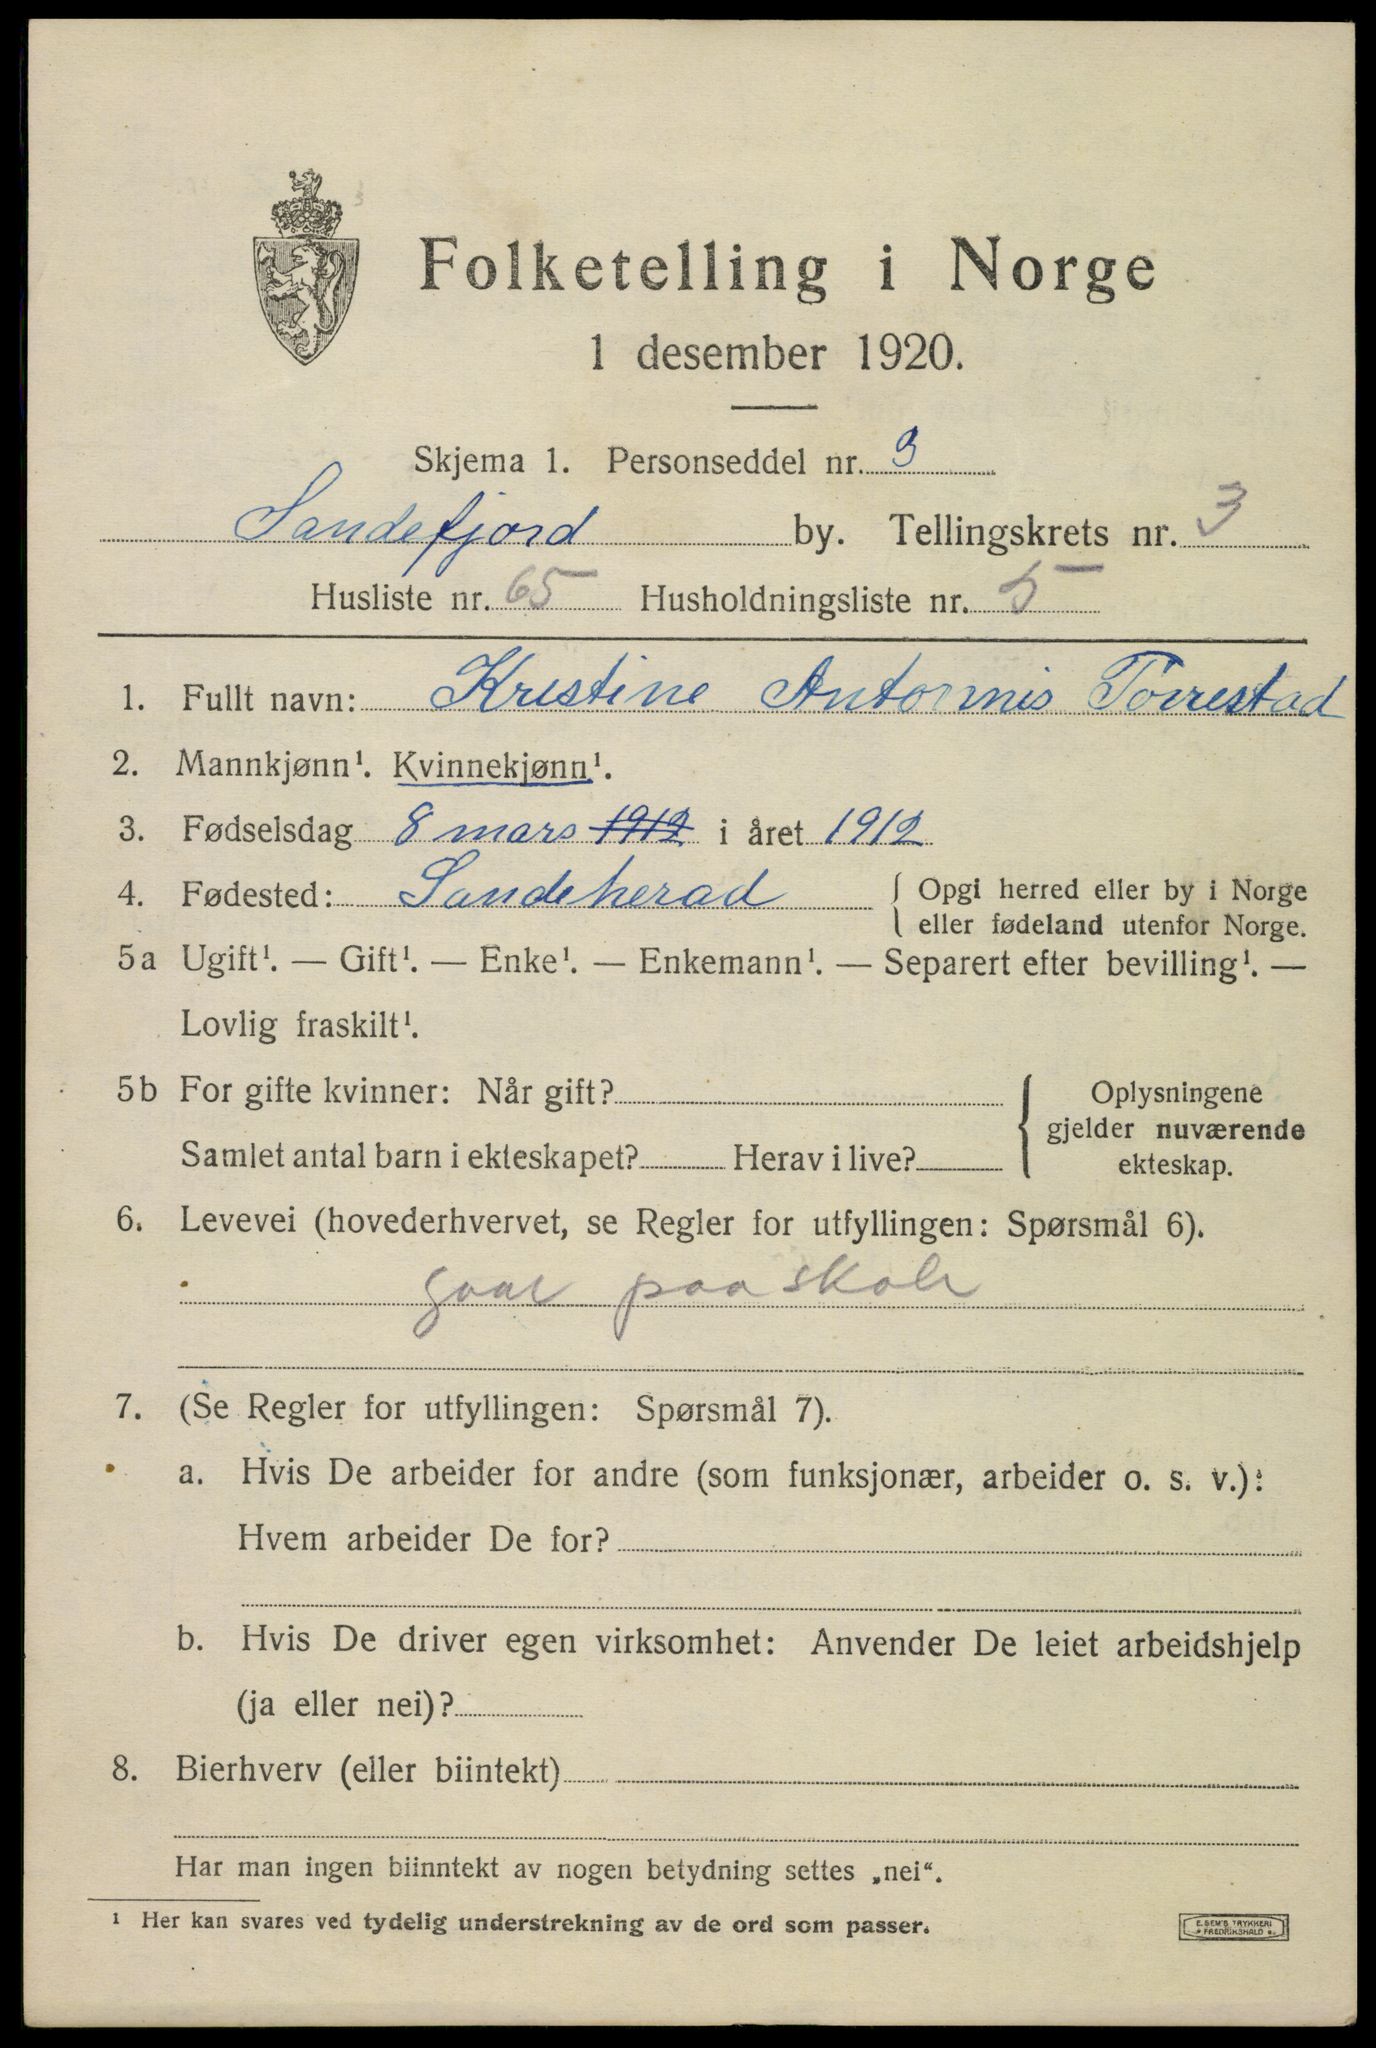 Folketelling i Norge
1 desember 1920.
Skjema 1. Personseddel nr. 3
Sandefjord by. Tellingskrets nr. 3
Husliste nr. 65 Husholdningsliste nr. 5
1. Fullt navn: Kristine Antonnis Torrestad
2. Mannkjønn¹. Kvinnekjønn¹.
3. Fødselsdag 8 mars 1912 i året 1912
4. Fødested: Sandeherad { Opgi herred eller by i Norge
eller fødeland utenfor Norge.
5a Ugift¹. — Gift¹. — Enke¹. — Enkemann¹. — Separert efter bevilling¹. —
Lovlig fraskilt¹.
5b For gifte kvinner: Når gift?
Samlet antal barn i ekteskapet? Herav i live?
Oplysningene
gjelder nuværende
ekteskap.
6. Levevei (hovederhvervet, se Regler for utfyllingen: Spørsmål 6).
gaar paa skole
7. (Se Regler for utfyllingen: Spørsmål 7).
a. Hvis De arbeider for andre (som funksjonær, arbeider o. s. v.):
Hvem arbeider De for?
b. Hvis De driver egen virksomhet: Anvender De leiet arbeidshjelp
(ja eller nei)?
8. Bierhverv (eller biintekt)
Har man ingen biinntekt av nogen betydning settes „nei“.
¹ Her kan svares ved tydelig understrekning av de ord som passer.
E. SEM'S TRYKKERI
FREDRIKSHALD